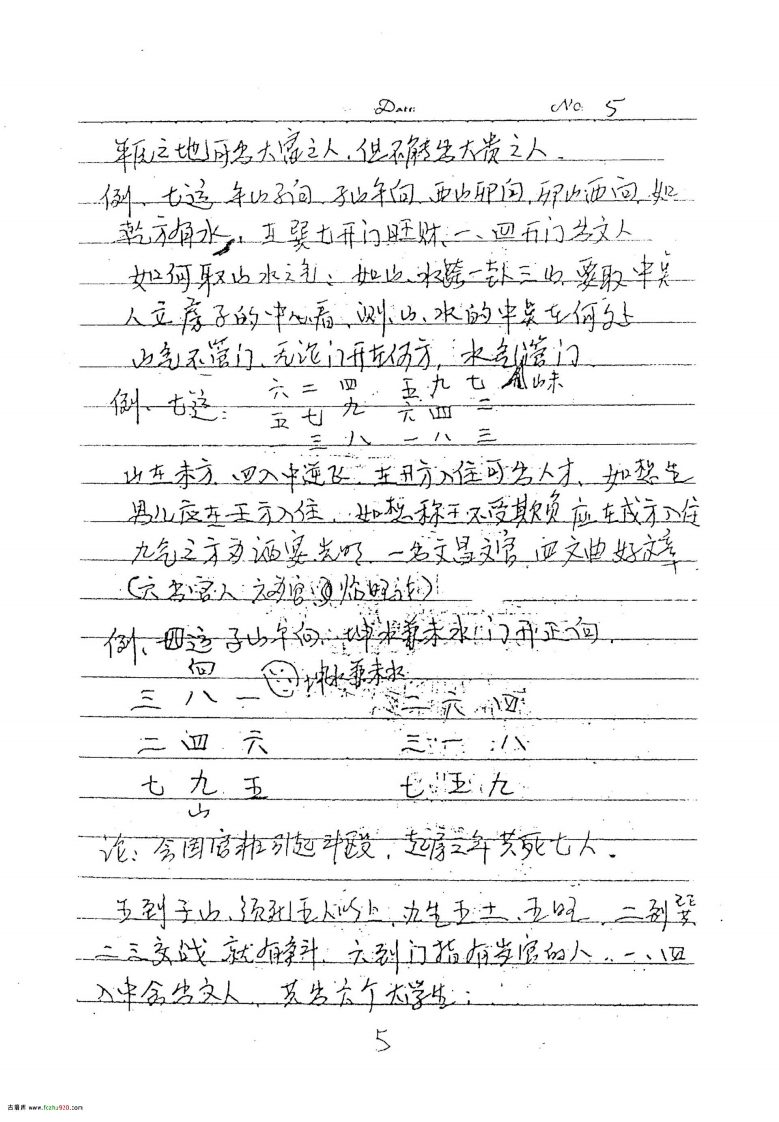 Date: No. 5
平民之地可出大富之人,但不能出大贵之人.
例、七运 午山子向 子山午向 酉山卯向,卯山酉向,如
乾方有水,在巽七开门旺财、一、四开门出文人
如何取山水之气:如山、水跨一卦三山,要取中点
人立房子的中心看,测山、水的中点在何处
山气不管门、无论门开在何方,水气管门
例、七运: 六 二 四 五 九 七 山未
五 七 九 六 四 二
三 八 一 八 三
山在未方,四入中逆飞,在丑方入住可出人才、如想生
男儿应在壬方入住,如想称王不受欺负应在戌方入住
九气之方为酒宴光明 一为文昌文官 四文曲好文章
(六出官人 六为官 临旺败)
例、四运 子山午向、坤水兼未水门开正向.
向 坤水兼未水
三 八 一 二 六 四
二 四 六 三 一 八
七 九 五 七 五 九
山
论:会因官引起斗殴,起房三年共死七人.
五到子山、须死五人以上,九生五土、五旺、二到巽
二三交战就有争斗,六到门指有当官的人..一、四
入中会出文人,共出六个大学生;
5
古籍库 www.fozhu920.com